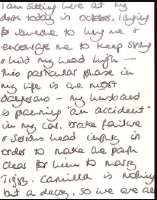 I am sitting here at my
desk today in October, longing
for someone to hug me &
encourage me to keep strong
& hold my head high -
this particular phase in
my life is the most
dangerous - my husband
is planning "an accident"
in my car. brake failure
& serious head injury in
order to make the path
clear for him to marry
Tiggy. Camilla is nothing
but a decoy, so we are